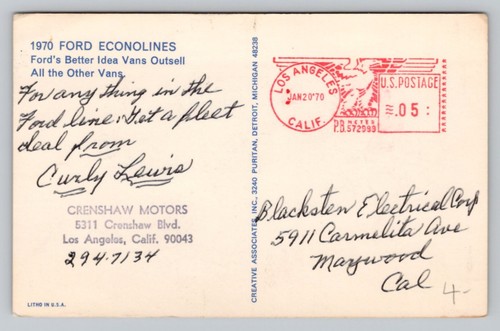 1970 FORD ECONOLINES
Ford's Better Idea Vans Outsell
All the Other Vans.
For any thing in the
Ford line. Get a fleet
deal from
Curly Lewis
CRENSHAW MOTORS
5311 Crenshaw Blvd.
Los Angeles, Calif. 90043
294-7134
LITHO IN U.S.A.
CREATIVE ASSOCIATES, INC., 3240 PURITAN, DETROIT, MICHIGAN 48238
LOS ANGELES
JAN 20 '70
CALIF.
U.S. POSTAGE
.05
P.B. METER
572999
Blacksten Electrical Corp
5911 Carmelita Ave
Maywood
Cal
4-